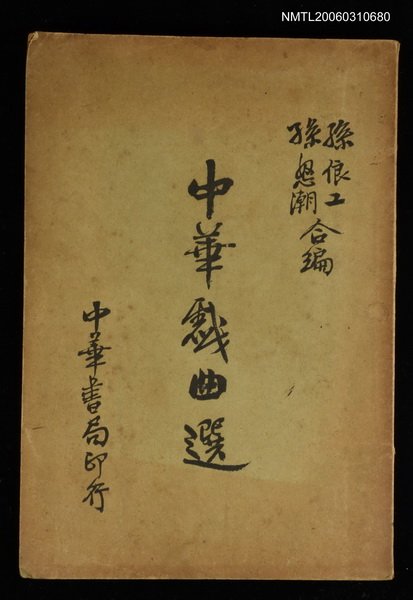 NMTL20060310680
孫俍工
孫怒潮
合編
中華戲曲選
中華書局印行